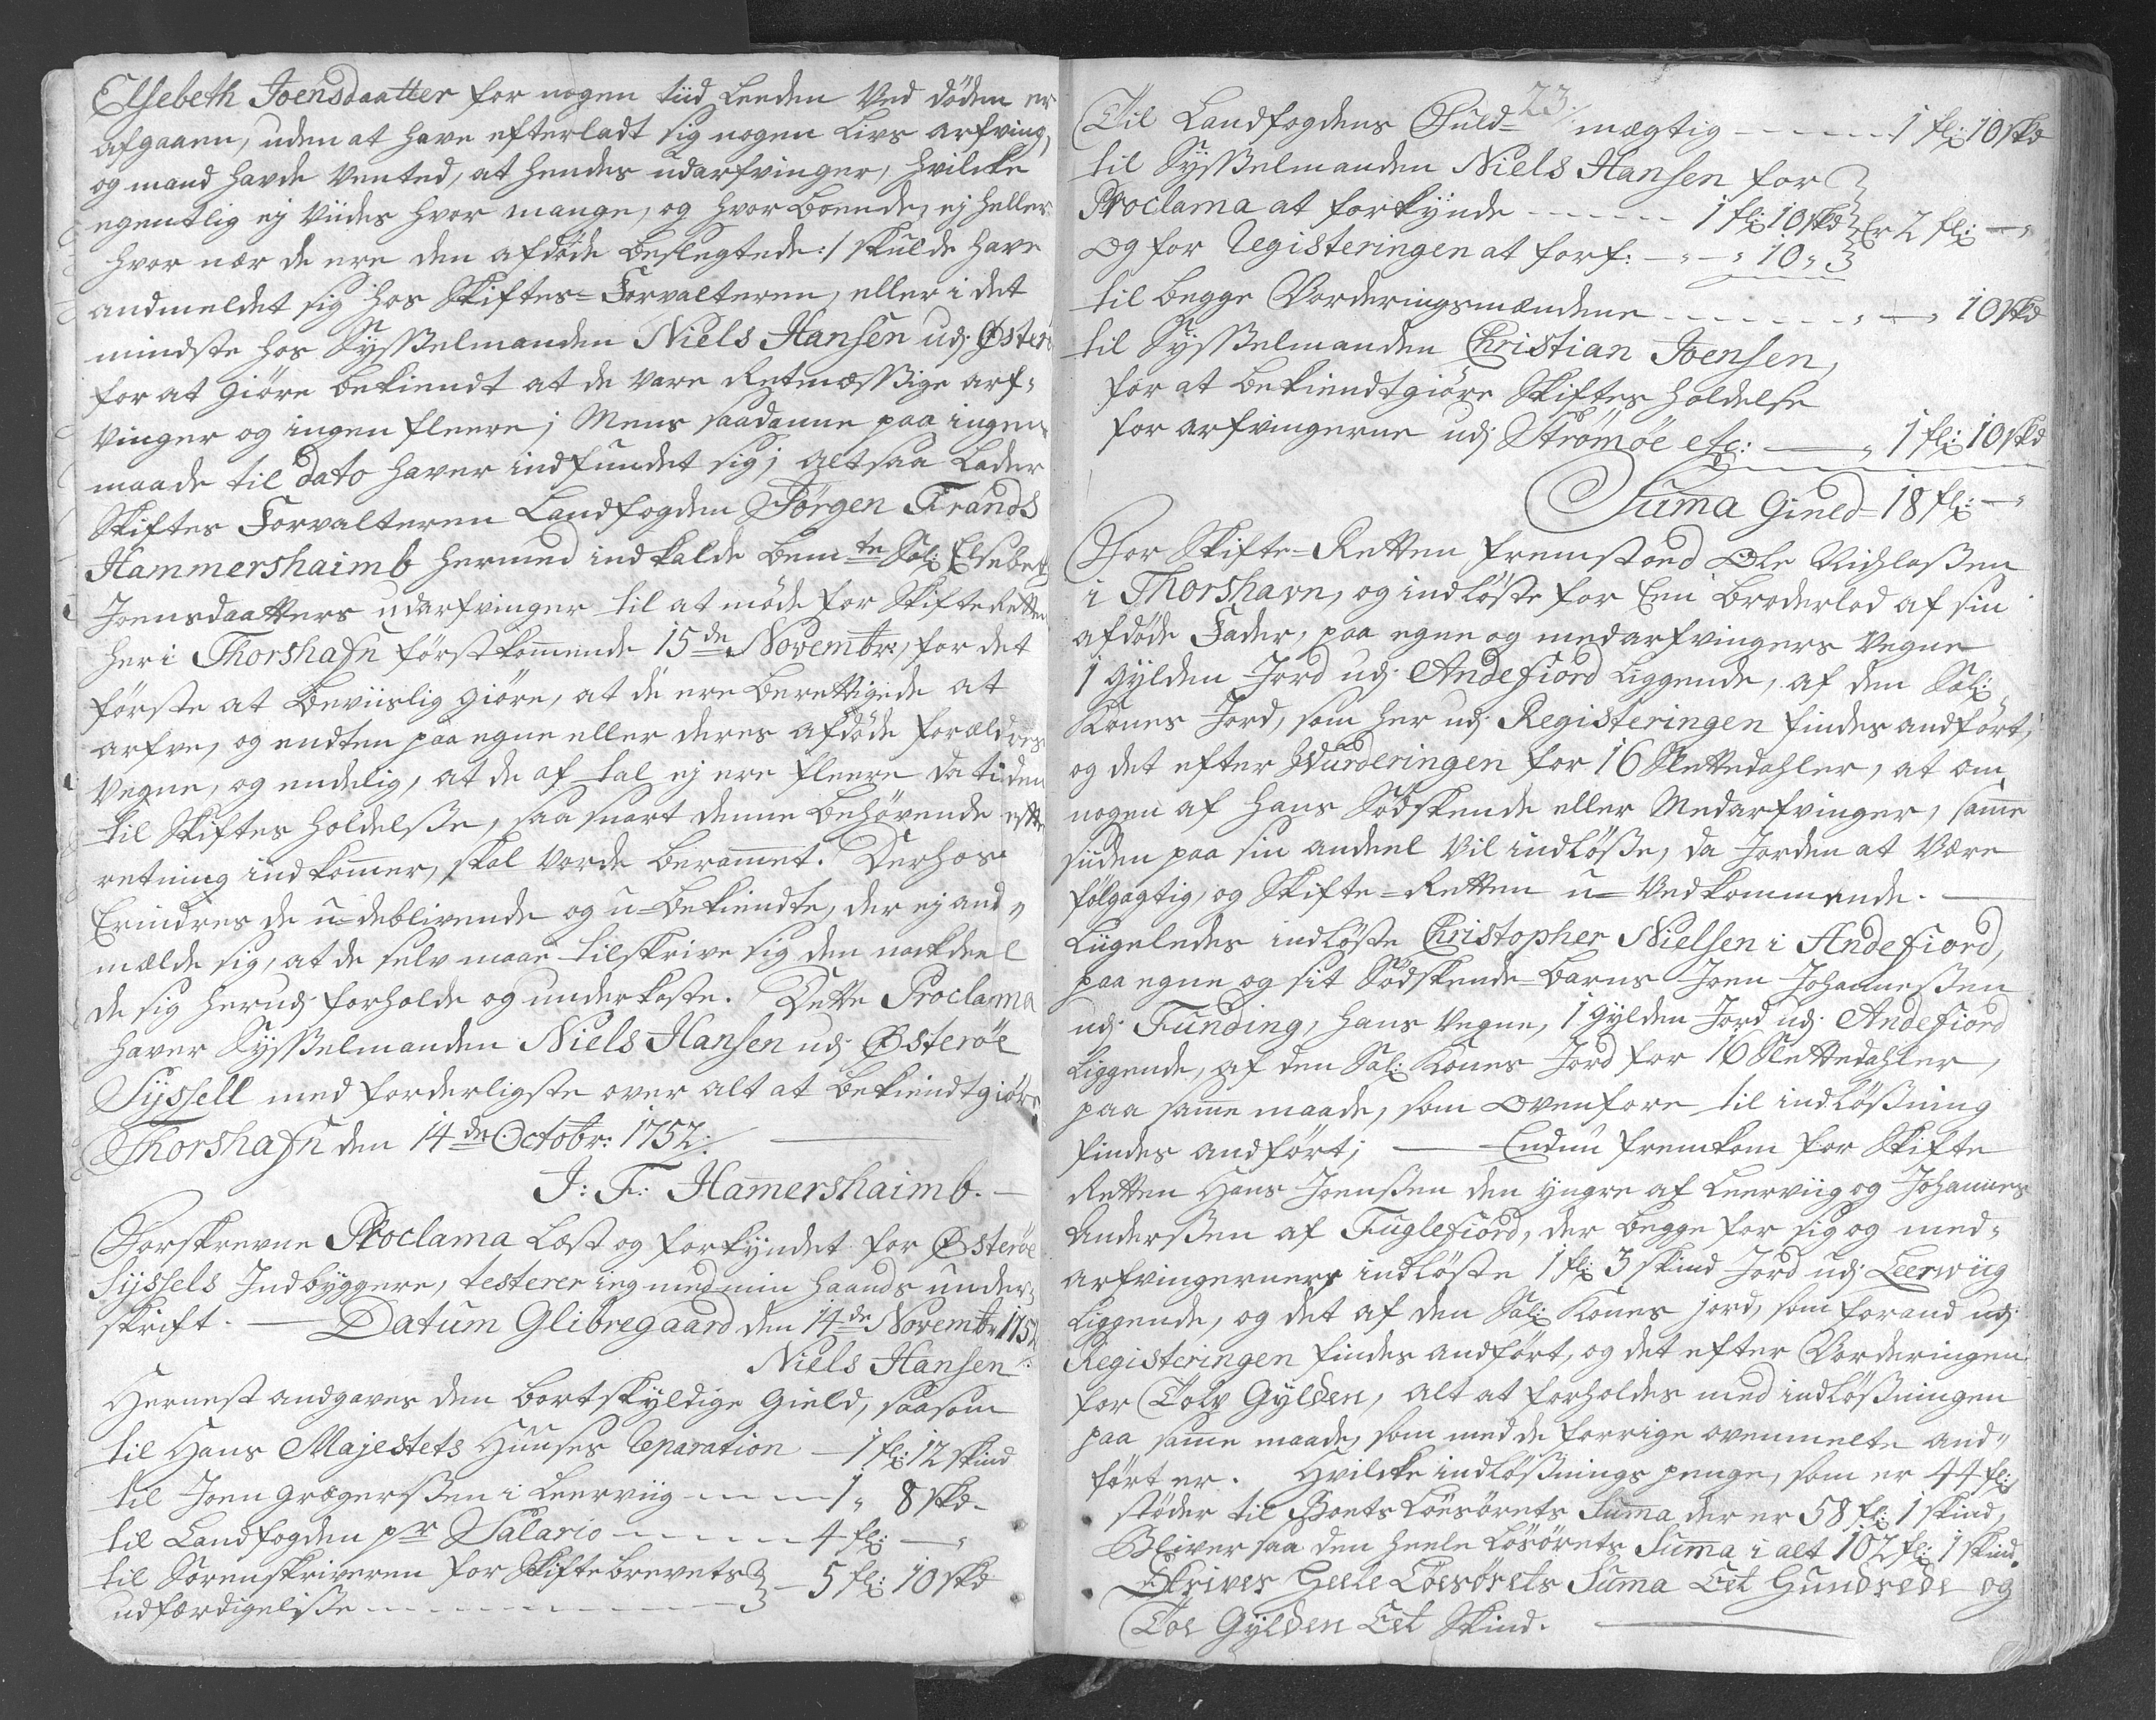 Elsebeth Joensdaatter for nogen tiid leeden Ved döden er
afgaaen, uden at have efterladt sig nogen Livs arfving,
og mand havde Vented, at hendes udarfvinger, hvilcke
egentlig ej viides hvor mange, og hvor boende, ej heller
hvor nær de ere den afdöde beslegtede :/ skulde have
andmeldet sig hos Skiftes=Forvalteren, eller i det
mindste hos Sysselmanden Niels Hansen udj Österö
for at giöre bekiendt at de vare Retmæssige arf=
vinger og ingen fleere; Mens saadanne paa ingen
maade til dato haver indfundet sig; altsaa Lader
Skiftes Forvalteren Landfogden Jörgen Frands
Hammershaimb hermed indkalde bem.te Sal: Elsebeth
Joensdaatters udarfvinger til at möde for Skifte Retten
her i Thorshafn förstkom̅ende 15de Novembr:, for det
förste at beviislig giöre, at de ere berettigede at
arfve, og endten paa egne eller deres afdöde forældres
Vegne, og endelig, at de af tal ej ere fleere da tiden
til Skiftes holdelsse, saa snart denne behövende efter
retning indkom̅er, skal vorde beram̅et. Derhos
Erindres de u=deblivende og u=bekiendte, der ej and=
mælde sig, at de selv maae tilskrive sig den nackdeel
de sig herudj forholde og underkaste. Dette Proclama
haver Sysselmanden Niels Hansen udj Österöe
Syssell med forderligste over alt at bekiendtgiöre
Thorshafn den 14de Octobr: 1752:/
J: F: Ham̅ershaimb.
Forskrevne Proclama Læst og forkyndet for Österöe
Syssels Indbyggere, testerer ieg med min haands under=
skrift. Datum Glibregaard den 14de Novembr 1752
Niels Hansen
Hernest andgaves den bortskyldige Gield, saasom
til Hans Majestets Huuses Reparation — 1 fl: 12 skind
til Joen Grægerssen i Leervig — 1 „ 8 skd
til Landfogden pr Salario — 4 fl: — „
til Sorenskriveren for Skiftebrevets
udfærdigelsse — 5 fl: 10 skd
23.
Til Landfogdens Fuld= mægtig — 1 fl: 10 skd
til Sysselmanden Niels Hansen for
Proclama at forkynde — 1 fl: 10 skd } Er 2 fl: — „
og for Registeringen at forf: — „ — „ 10 „
til begge Vorderingsmændene — „ — „ 10 skd
til Sysselmanden Christian Joensen,
for at bekiendtgiöre Skiftes holdelse
for arfvingerne udj Strömöe etc: — 1 fl: 10 skd
Sum̅a Gield = 18 fl: — „
For Skifte=Retten fremstoed Ole Nichlassen
i Thorshavn, og indlöste for Een Broderlod af sin
afdöde Fader, paa egne og medarfvingers Vegne
1 Gylden Jord udj Andefiord Liggende, af den Sal:
Kones Jord, som her udj Registeringen findes andfört,
og det efter Wurderingen for 16 Slettedahler, at om
nogen af hans Södskende eller Medarfvinger, sam̅e
siiden paa sin andeel Vil indlösse, da Jorden at være
fölgagtig, og Skifte=Retten u=Vedkommende.
Liigeledes indlöste Christopher Nielsen i Andefiord,
paa egne og sit Södskende=Barns Joen Johannessen
udj Funding, hans Vegne, 1 Gylden Jord udj Andefiord
Liggende, af den Sal: Kones Jord for 16 Slettedahler,
paa sam̅e maade, som ovenfore til indlössning
findes andfört; — Endnu fremkom for Skifte
Retten Hans Joenssen den yngre af Leerviig og Johannes
Anderssen af Fuglefiord, der begge for sig og med=
arfvingerners indlöste 1 fl: 3 skind Jord udj Leerwiig
Liggende, og det af den Sal: Kones jord, som forand udj
Registeringen findes andfört, og det efter Vorderingen
for Tolv Gylden, alt at forholdes med indlössningen
paa sam̅e maade, som med de forrige ovenmelte and=
fört er. Hvilcke indlössnings penge, som er 44 fl:
stöder til Boets Löesörets Sum̅a der er 58 fl: 1 skind,
Bliver saa den heele Lösörets Sum̅a i alt 102 fl: 1 skind.
Skriver Heele Löesörets Sum̅a Eet Hundrede og
Toe Gylden Eet Skind.